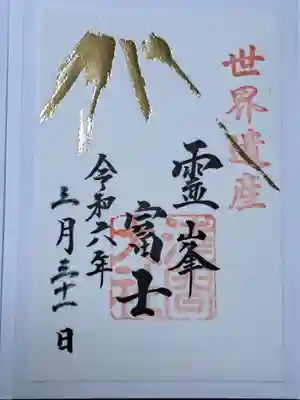 世界遺産
霊峯
富士
令和六年
三月三十一日